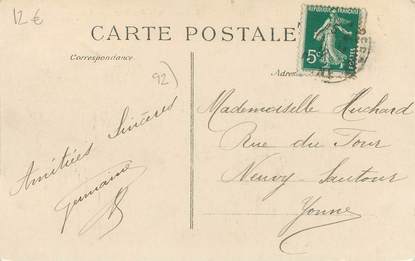 12 €
CARTE POSTALE
RÉPUBLIQUE FRANÇAISE
5c
POSTES
Correspondance.
92)
Amitiées Sincères
Germaine
Mademoiselle Huchard
Rue du Four
Neuvy-Sautour
Yonne